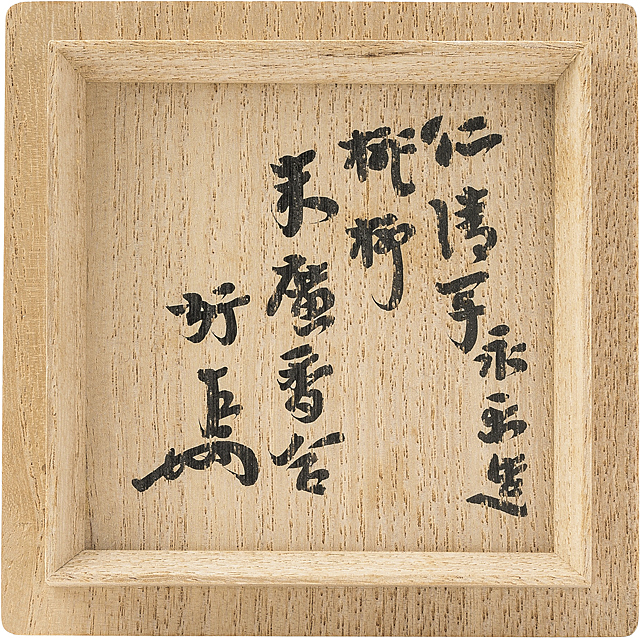 仁清写 永楽造
桃柳
末廣香合